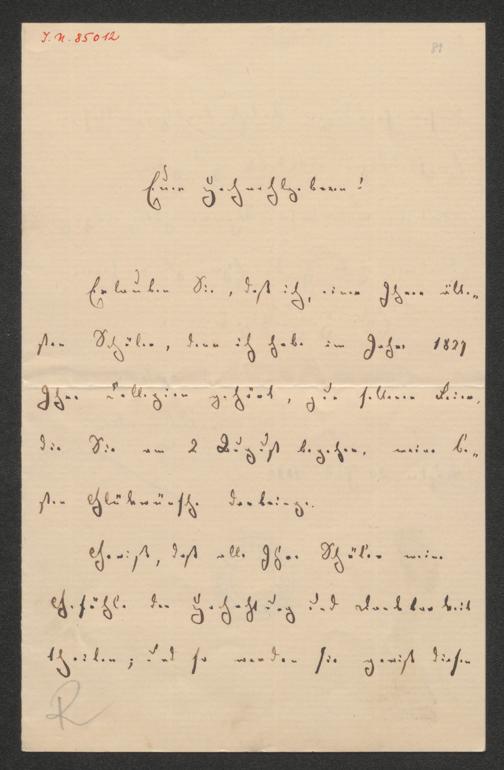 I. N. 85012
81
Euer Hochwohlgeboren!
Erlauben Sie, daß ich, einer Ihrer älte„
sten Schüler, denn ich habe im Jahre 1827
Ihre Collegien gehört, zur seltenen Feier,
die Sie am 2 August begehen, meine be„
sten Glückwünsche darbringe.
Gewiß, daß alle Ihre Schüler meine
Gefühle der Hochachtung und Dankbarkeit
theilen; und so werden sie gewiß diesen
R